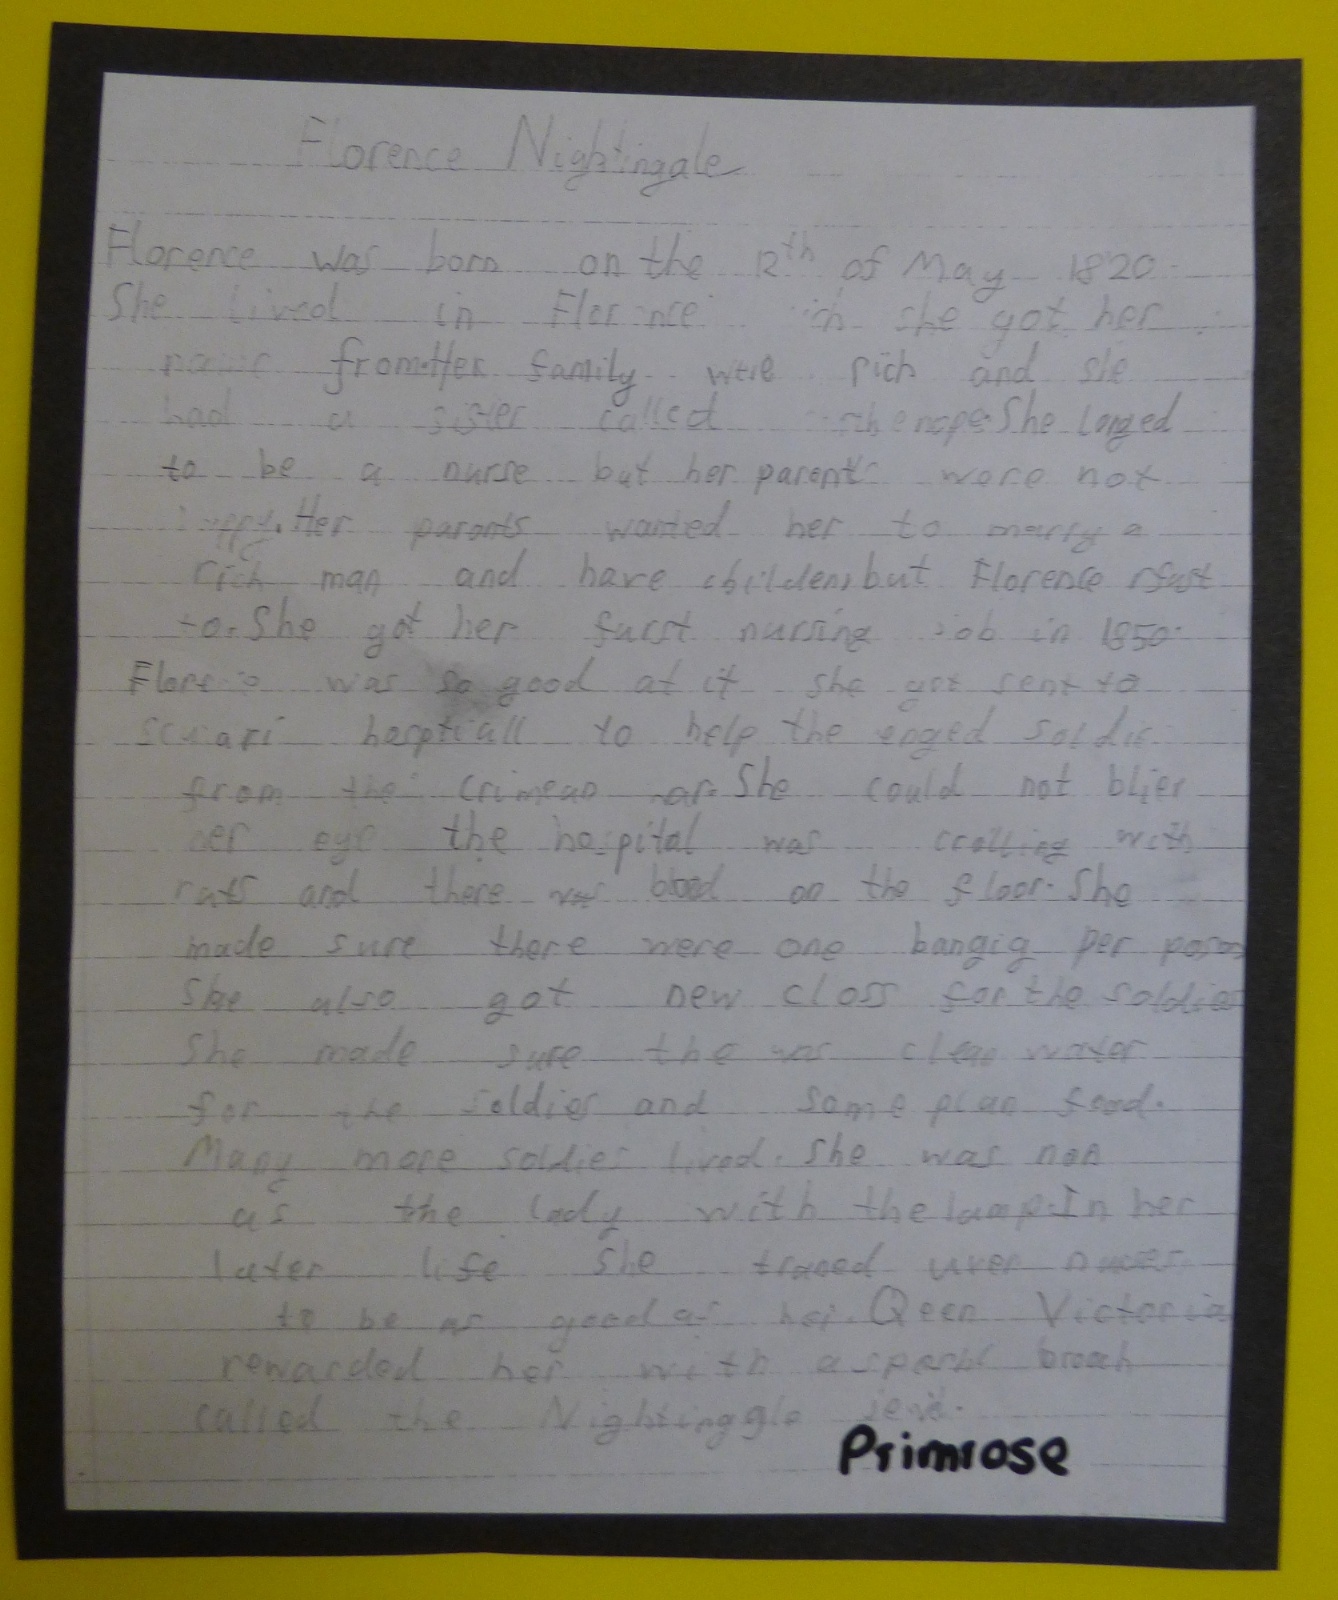 Florence Nightingale
Florence was born on the 12th of May 1820.
She lived in Florence she got her
name from. Her family were rich and she
had a sister called She longed
to be a nurse but her parents were not
happy. Her parents wanted her to marry a
rich man and have childen, but Florence rfust
to. She got her furst nursing job in 1850.
was so good at it she got sent to
Scutari hosptiall to help the enged soldie
from the Crimean war. She could not blier
her eye the hospital was crolling with
rats and there was blood on the floor. She
made sure there were one bangig per
She also got new closs for the soldies
She made sure the was clean water
for the soldies and some plan food.
Many more soldies lived. She was non
as the lady with the lamp. In her
later life she traned uver nurses
to be as good as her. Qeen Victoria
rewarded her with a speshl broach
called the Nightinggle
Primrose